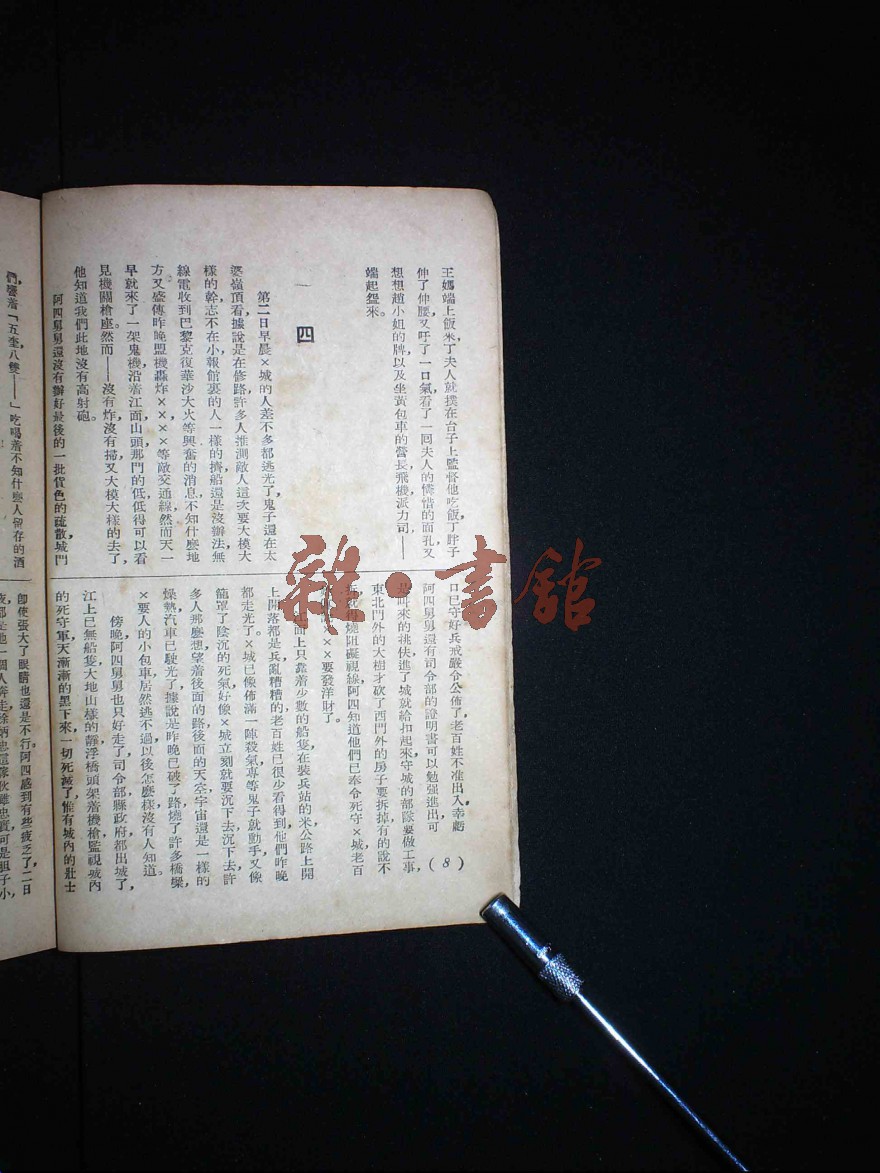 王媽端上飯來,丁夫人就撲在台子上監督他吃飯,丁胖子
伸了伸腰,又呼了一口氣,看了一回夫人的憐惜的面孔,又
想想趙小姐的牌,以及坐黃包車的營長,飛機,派力司——
端起盌來。
四
第二日早晨,×城的人差不多都逃光了,鬼子還在太
婆嶺頂看,據說是在修路,許多人推測敵人這次要大模大
樣的幹,志不在小,報館裏的人一樣的擠船還是沒辦法,無
線電收到巴黎克復,華沙大火等興奮的消息,不知什麼地
方又盛傳昨晚盟機轟炸×××等敵交通線,然而天一
早就來了一架鬼機,沿着江面山頭那門的低,低得可以看
見機關槍座。然而——沒有炸,沒有掃,又大模大樣的去了,
他知道我們此地沒有高射砲。
阿四舅舅還沒有辦好最後的一批貨色的疏散,城門
口已守好兵,戒嚴令公佈了,老百姓不准出入,幸虧
阿四舅舅還有司令部的證明書可以勉强進出,可
是叫來的挑伕進了城就給扣起來,守城的部隊要做工事,
東北門外的大樹才砍了,西門外的房子要拆掉,有的說不
拆就得燒,阻礙視線,阿四知道他們已奉令死守×城,老百
××要發洋財了。
江面上只靠着少數的船隻在裝兵站的米,公路上開
上開落都是兵,亂糟糟的老百姓已很少看得到,他們昨晚
都走光了。×城已像佈滿一陣殺氣,專等鬼子就動手,又像
籠罩了陰沉的死氣,好像×城立刻就要沉下去,沉下去,許
多人那麼想,望着後面的路,後面的天空,宇宙還是一樣的
燥熱,汽車已駛光了,據說是昨晚已破了路,燒了許多橋樑,
×要人的小包車居然逃不過,以後怎麼樣沒有人知道。
傍晚,阿四舅舅也只好走了,司令部縣政府都出城了,
江上已無船隻,大地山樣的靜,浮橋頭架着機槍監視城內
的死守軍,天漸漸的黑下來,一切死滅了,惟有城內的壯士
(8)
們,響着「五奎,八雙——」吃喝着不知什麼人留存的酒
卽使張大了眼睛,也還是不行。阿四感到有些疲乏了,二日